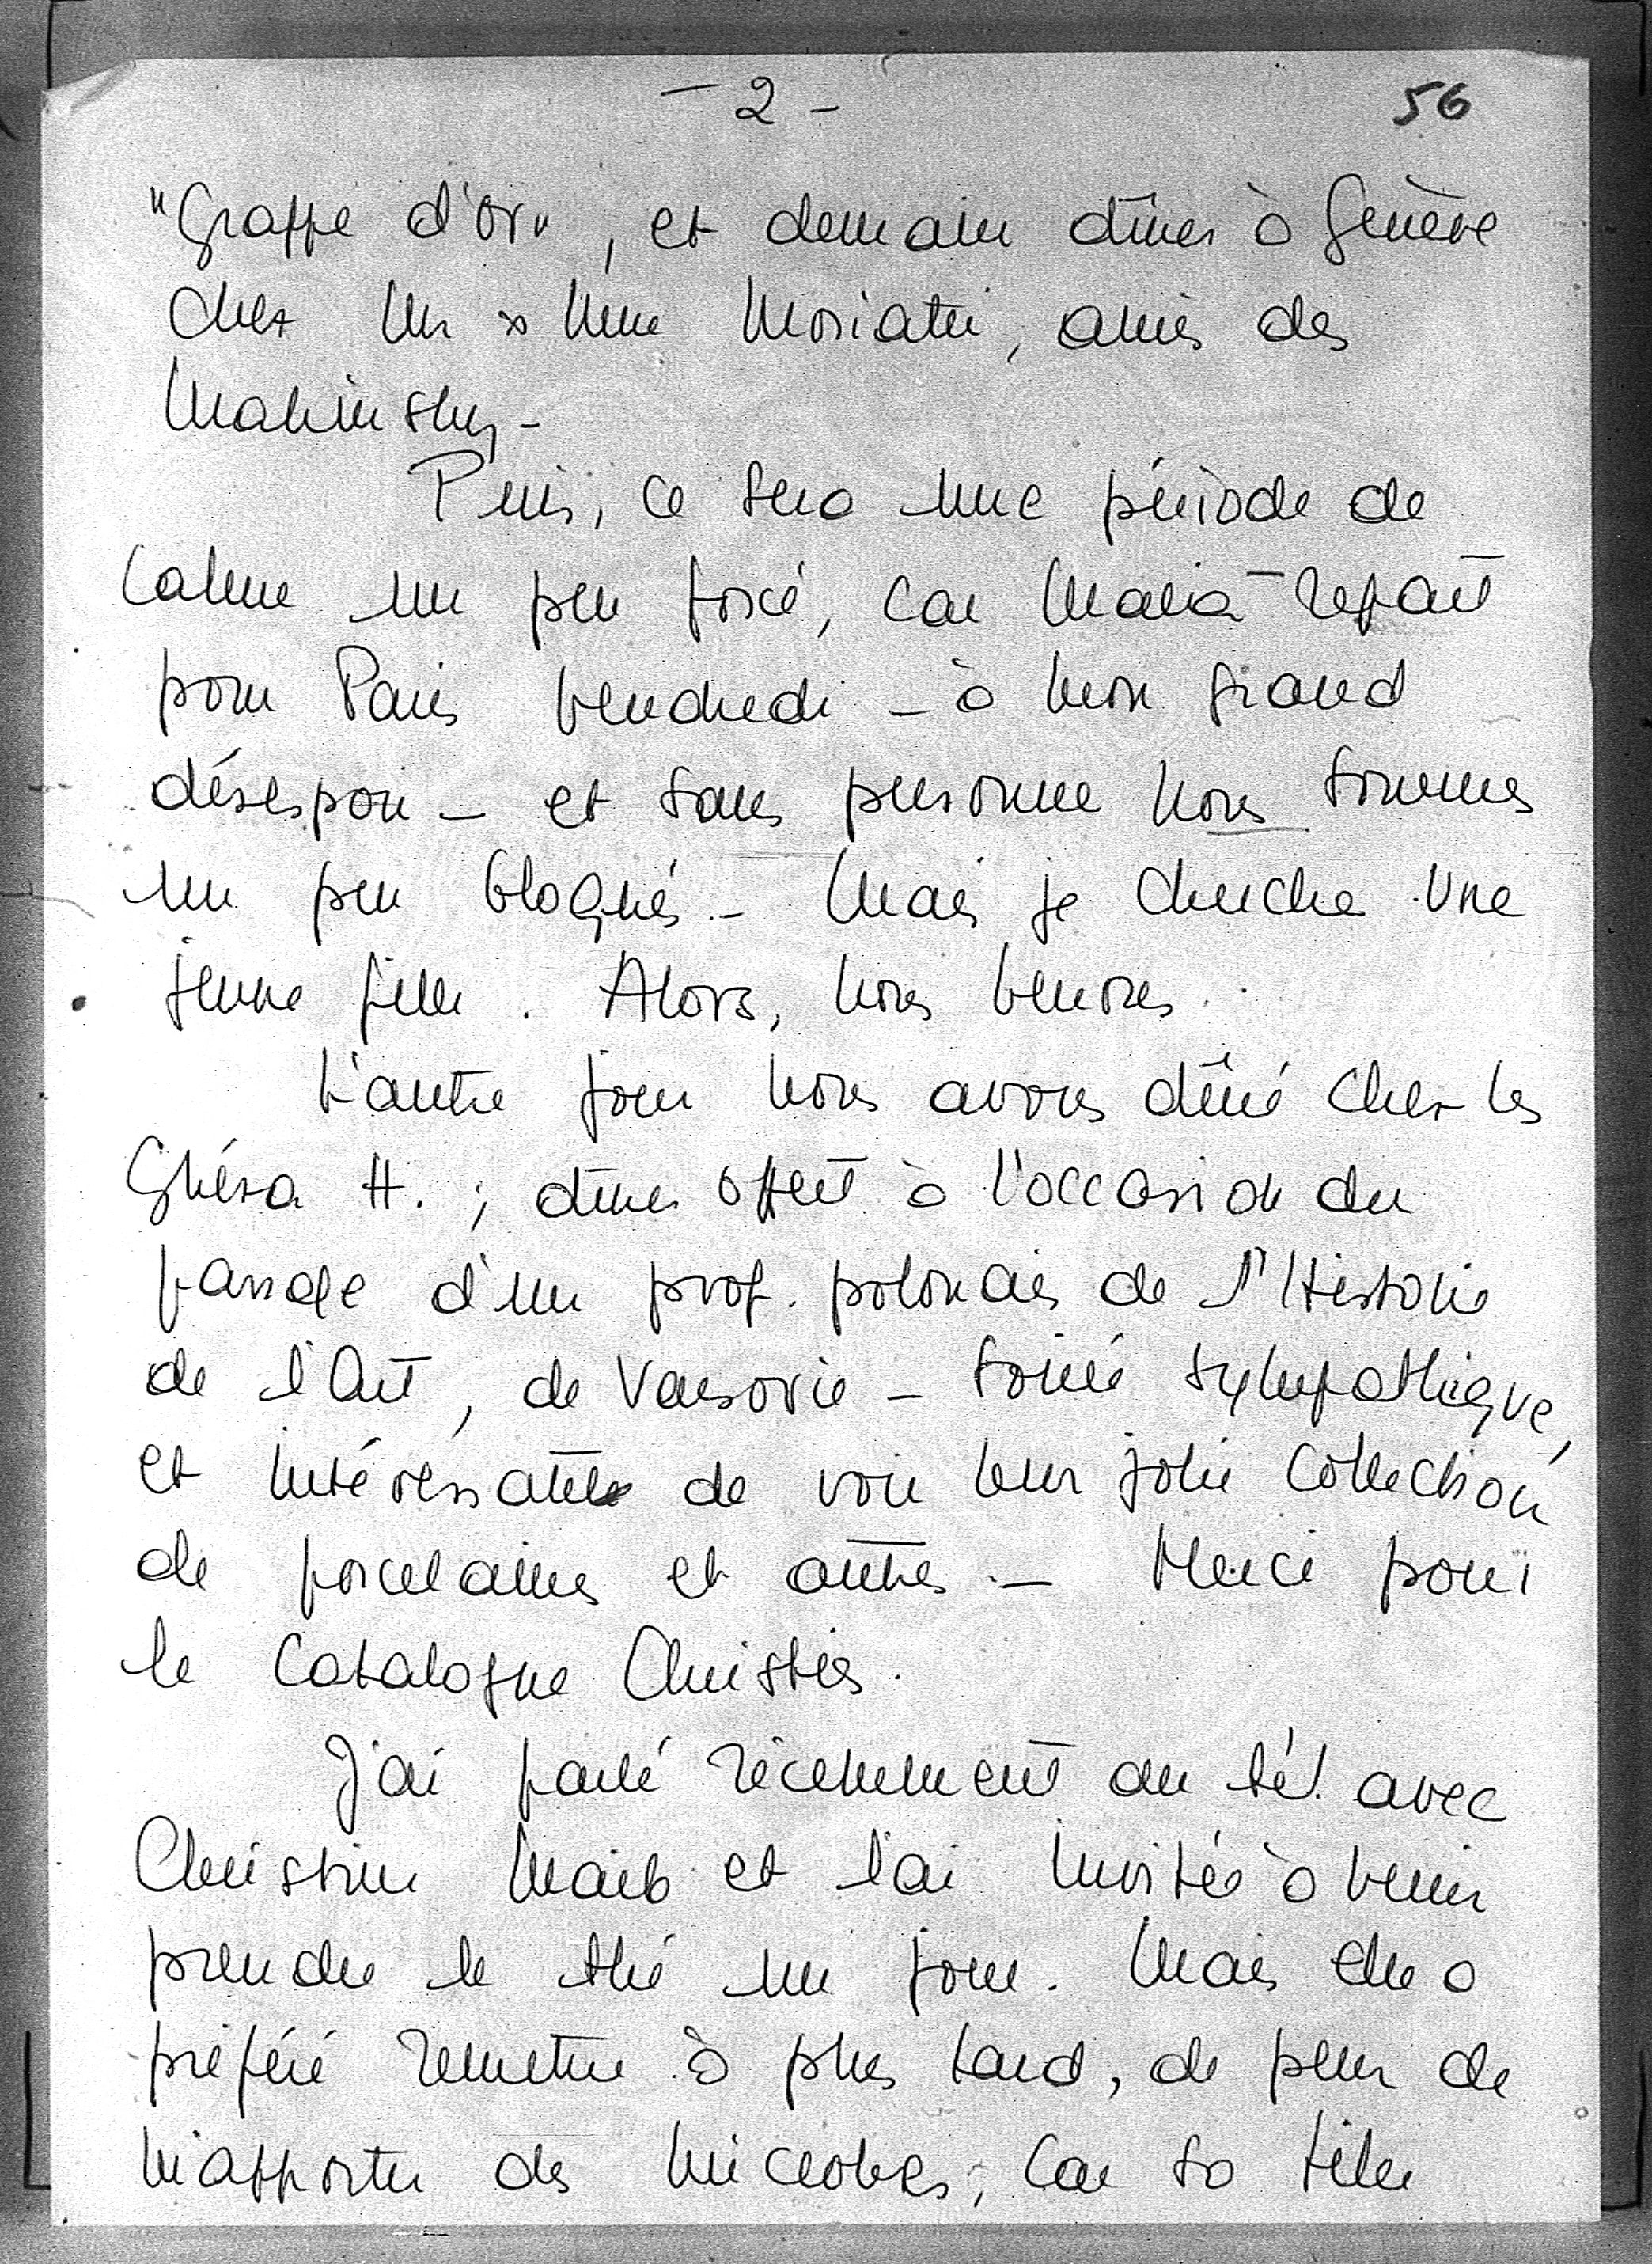 - 2 -
56
"Grappe d'or", et demain dîner à Genève
chez Mr & Mme Moriatti, amis des
Malinsky -
Puis, ce sera une période de
calme un peu forcé, car Maria repart
pour Paris vendredi - à mon grand
désespoir - et sans personne nous sommes
un peu bloqués - Mais je cherche une
jeune fille. Alors, nous verrons.
L'autre jour nous avons dîné chez les
Ghéra H. ; dîner offert à l'occasion du
passage d'un prof. polonais de l'Histoire
de l'Art, de Varsovie - soirée sympathique,
et intéressante de voir leur jolie collection
de porcelaines et autres - Merci pour
le catalogue Christies.
J'ai parlé récemment au tél. avec
Christine et l'ai invitée à venir
prendre le thé un jour. Mais elle a
préféré remettre à plus tard, de peur de
m'apporter des microbes, car sa fille